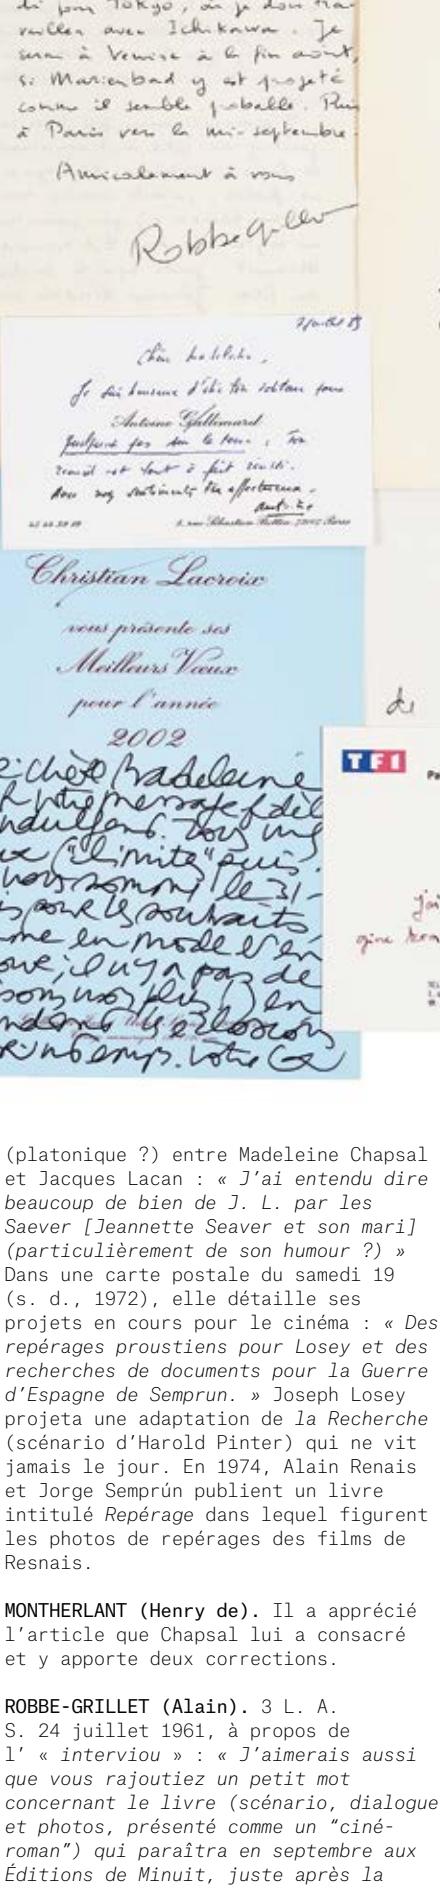 di pour Tokyo, où je dois tra-
vailler avec Ichikawa. Je
serai à Venise à la fin août,
si Marienbad y est projeté
comme il semble probable. Puis
à Paris vers la mi-septembre.
Amicalement à vous
Robbe-Grillet
Chère Madeleine,
Je suis heureux d'être ton
Antoine Gallimard
quelques pas sur la terre, Ton
recueil est tout à fait réussi.
Avec mes sentiments très affectueux.
Antoine
Christian Lacroix
vous présente ses
Meilleurs Vœux
pour l'année
2002
chère Madeleine
votre message fidèl
vous
"limite" puis
nous sommes le 31
pour les souhaits
en mode
il n'y a pas de
non plus
votre
de
TF1
(platonique ?) entre Madeleine Chapsal
et Jacques Lacan : « J'ai entendu dire
beaucoup de bien de J. L. par les
Saever [Jeannette Seaver et son mari]
(particulièrement de son humour ?) »
Dans une carte postale du samedi 19
(s. d., 1972), elle détaille ses
projets en cours pour le cinéma : « Des
repérages proustiens pour Losey et des
recherches de documents pour la Guerre
d'Espagne de Semprun. » Joseph Losey
projeta une adaptation de la Recherche
(scénario d'Harold Pinter) qui ne vit
jamais le jour. En 1974, Alain Renais
et Jorge Semprún publient un livre
intitulé Repérage dans lequel figurent
les photos de repérages des films de
Resnais.
MONTHERLANT (Henry de). Il a apprécié
l'article que Chapsal lui a consacré
et y apporte deux corrections.
ROBBE-GRILLET (Alain). 3 L. A.
S. 24 juillet 1961, à propos de
l' « interviou » : « J'aimerais aussi
que vous rajoutiez un petit mot
concernant le livre (scénario, dialogue
et photos, présenté comme un “ciné-
roman”) qui paraîtra en septembre aux
Éditions de Minuit, juste après la